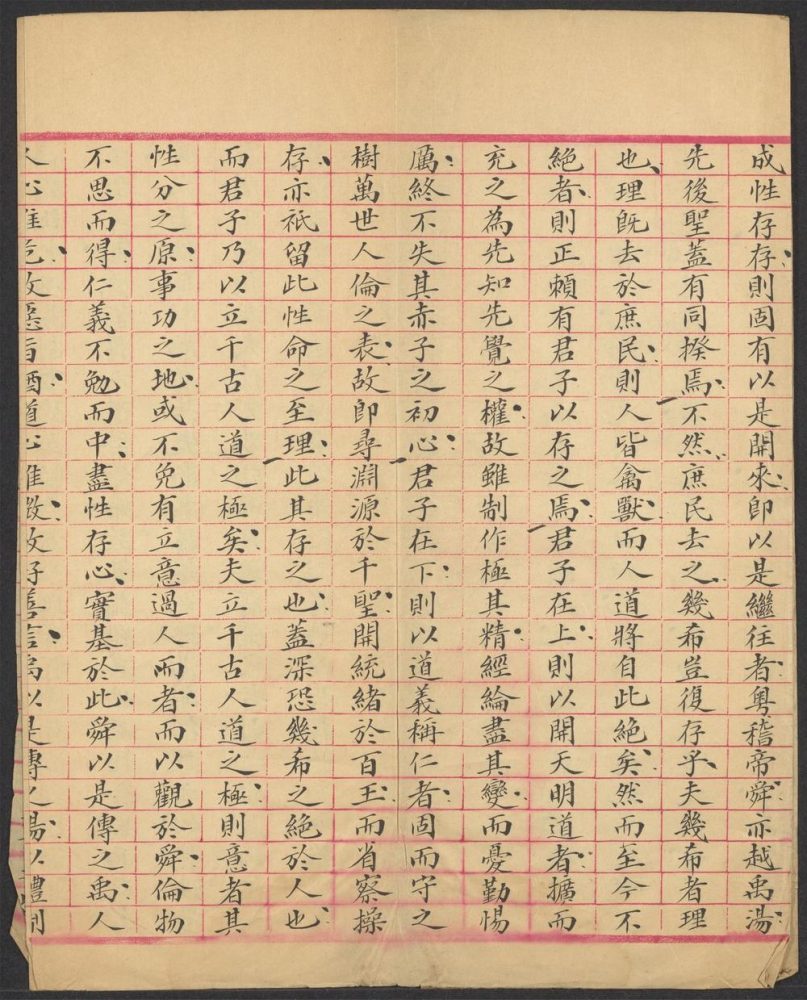 成性存存則固有以是開來即以是繼往者粵稽帝舜亦越禹湯
先後聖蓋有同揆焉不然庶民去之幾希豈復存乎夫幾希者理
也理既去於庶民則人皆禽獸而人道將自此絕矣然而至今不
絕者則正賴有君子以存之焉君子在上則以開天明道者擴而
充之為先知先覺之權故雖制作極其精經綸盡其變而憂勤惕
厲終不失其赤子之初心君子在下則以道義稱仁者固而守之
樹萬世人倫之表故即尋淵源於千聖開統緒於百王而省察操
存亦祇留此性命之至理此其存之也蓋深恐幾希之絕於人也
而君子乃以立千古人道之極矣夫立千古人道之極則意者其
性分之原事功之地或不免有立意過人而者而以觀於舜倫物
不思而得仁義不勉而中盡性存心實基於此舜以是傳之禹人
人心惟危故惡旨酒道心惟微故好善言禹以是傳之湯以禮制